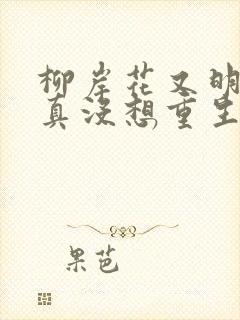 柳岸花又明
真没想重生
果芭